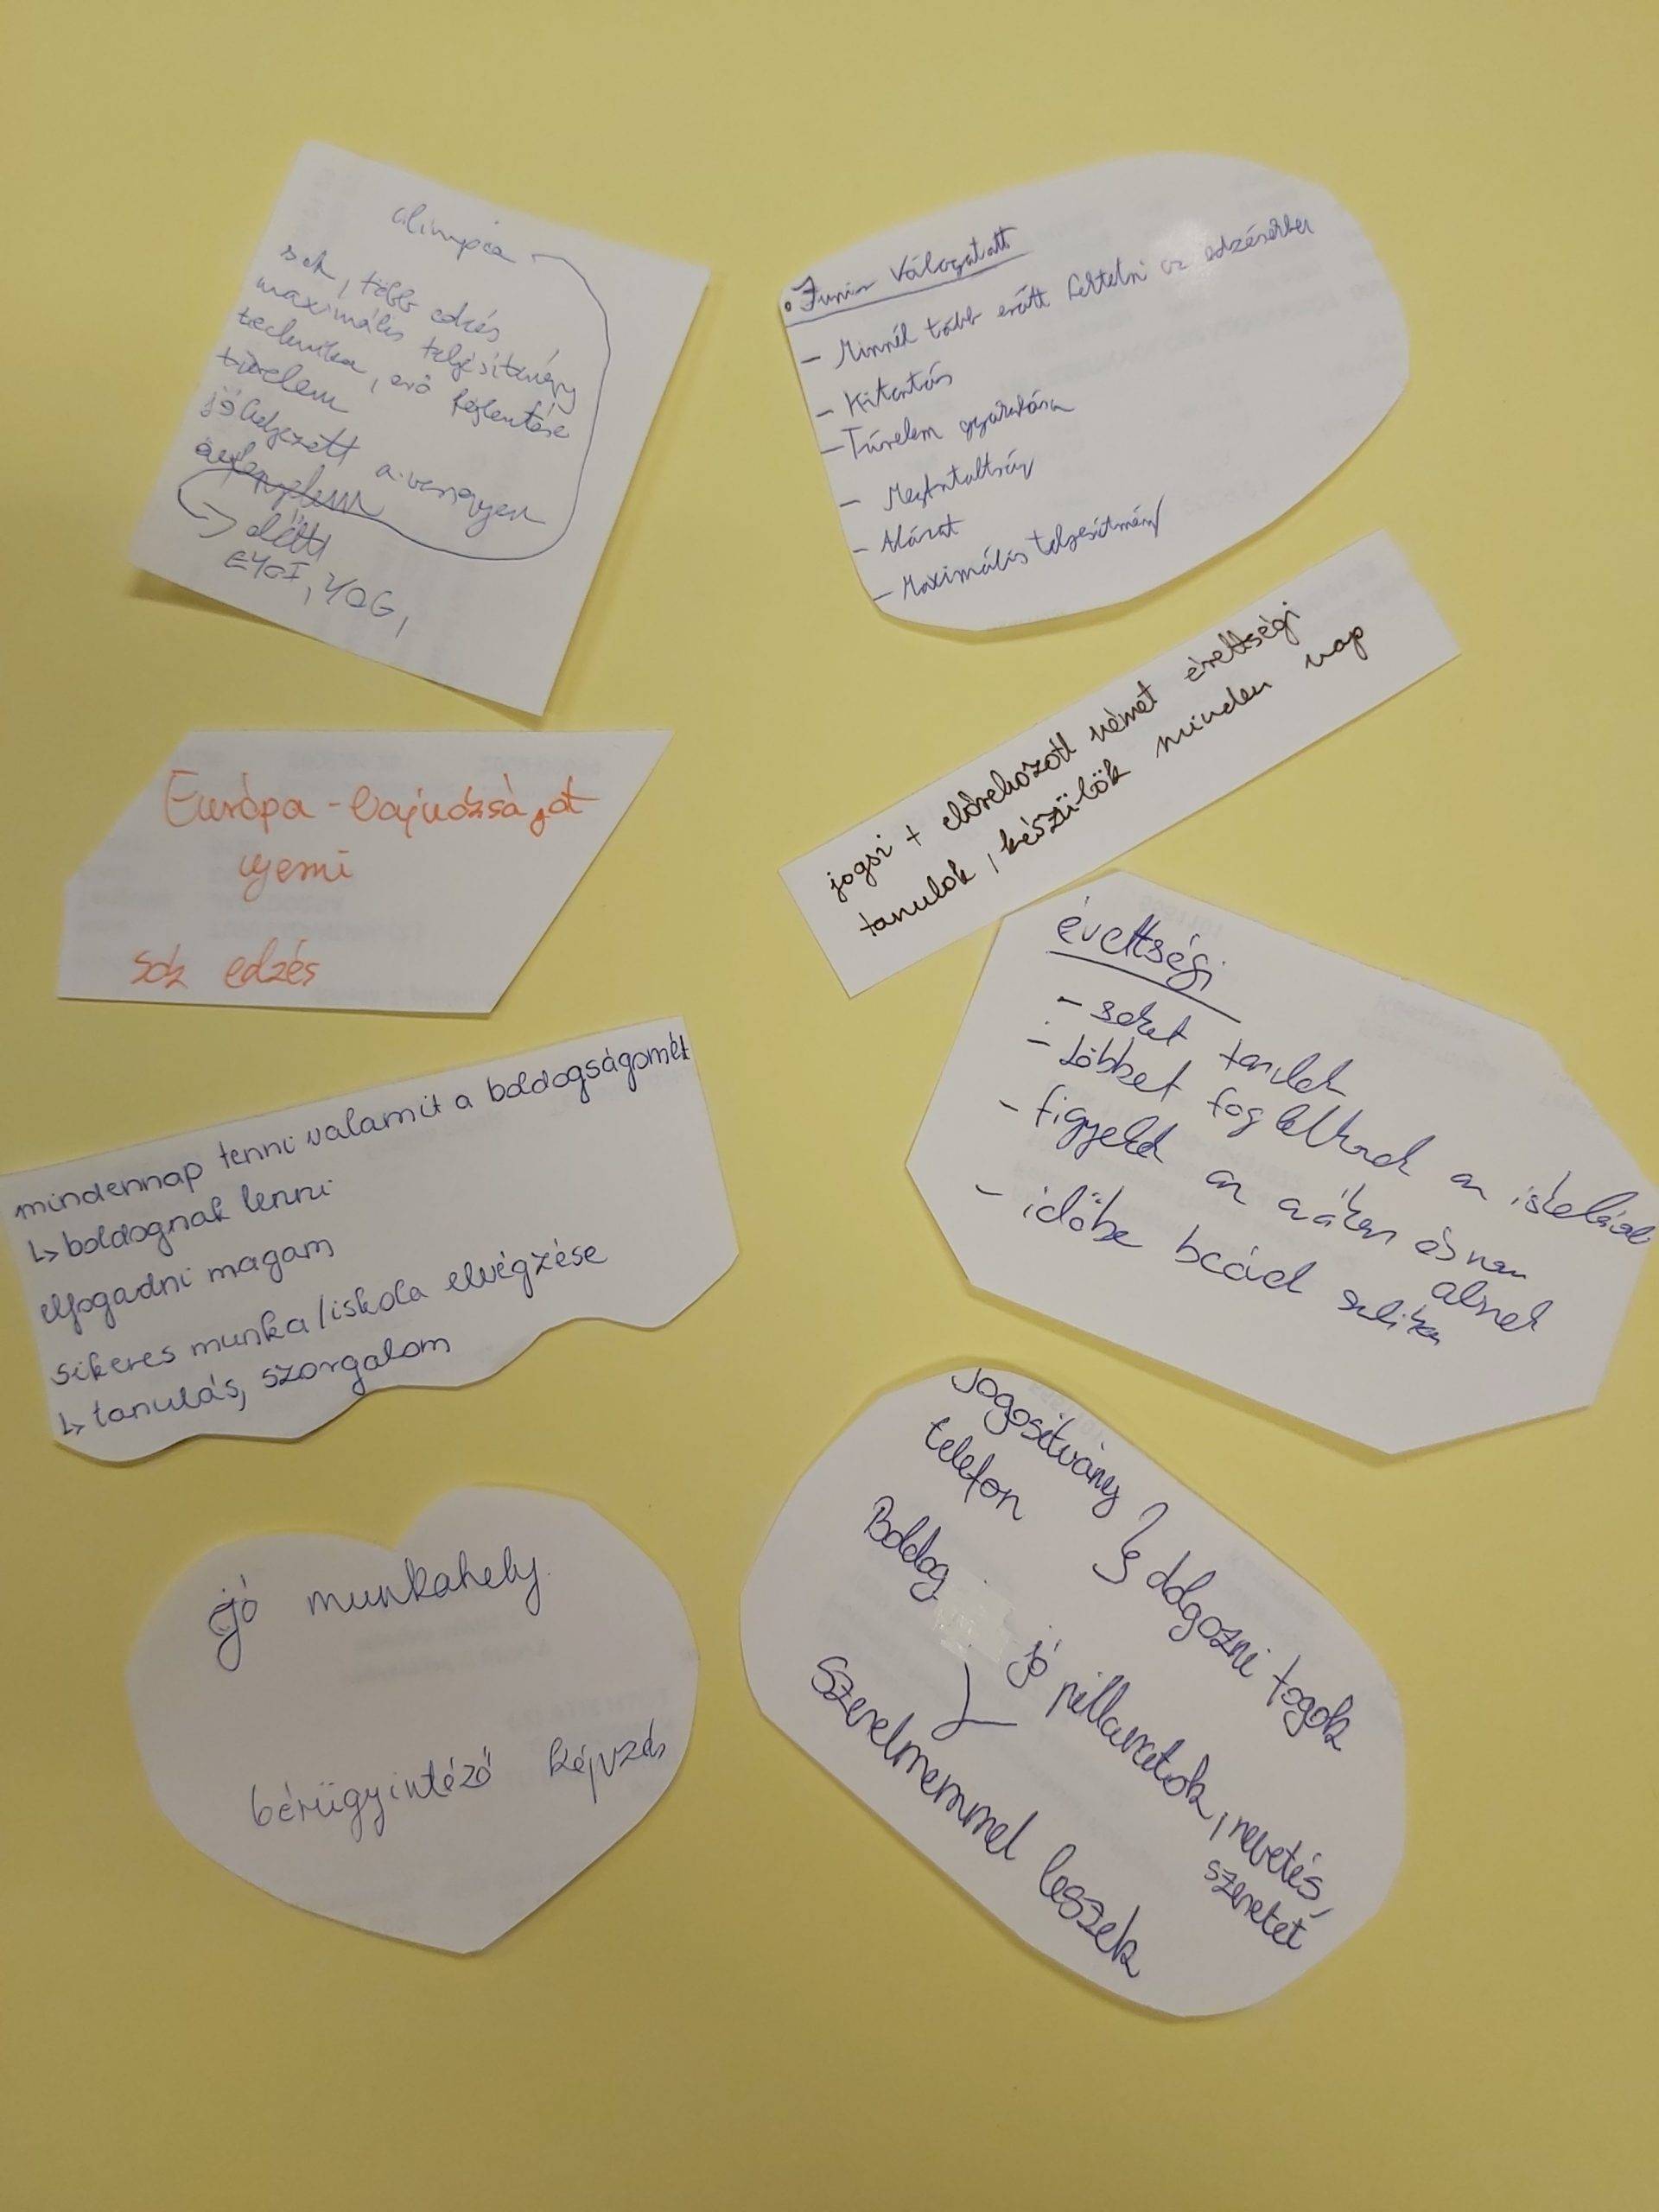 olimpia
sok, több edzés
maximális teljesítmény
technika, erő fejlesztése
türelem
jó helyezett a versenyen
előtt
EYOF, YOG,
• Junior Válogatott
- Minnél több erőt fektetni az edzésekbe
- Kitartás
- Türelem gyakorlása
- Megfontoltság
- Alázat
- Maximális teljesítmény
jogsi + előrehozott német érettségi
tanulok, készülök minden nap
Európa-bajnokságot
nyerni
sok edzés
érettségi
- sokat tanulok
- többet foglalkozok az iskolával
- figyelek az órákon és nem
alszok
- időbe beérek suliba
mindennap tenni valamit a boldogságomét
↳ boldognak lenni
elfogadni magam
sikeres munka/iskola elvégzése
↳ tanulás, szorgalom
Jogosítvány
telefon } dolgozni fogok
Boldog
jó pillanatok, nevetés,
szeretet
Szerelmemmel leszek
jó munkahely
bérügyintéző képzés